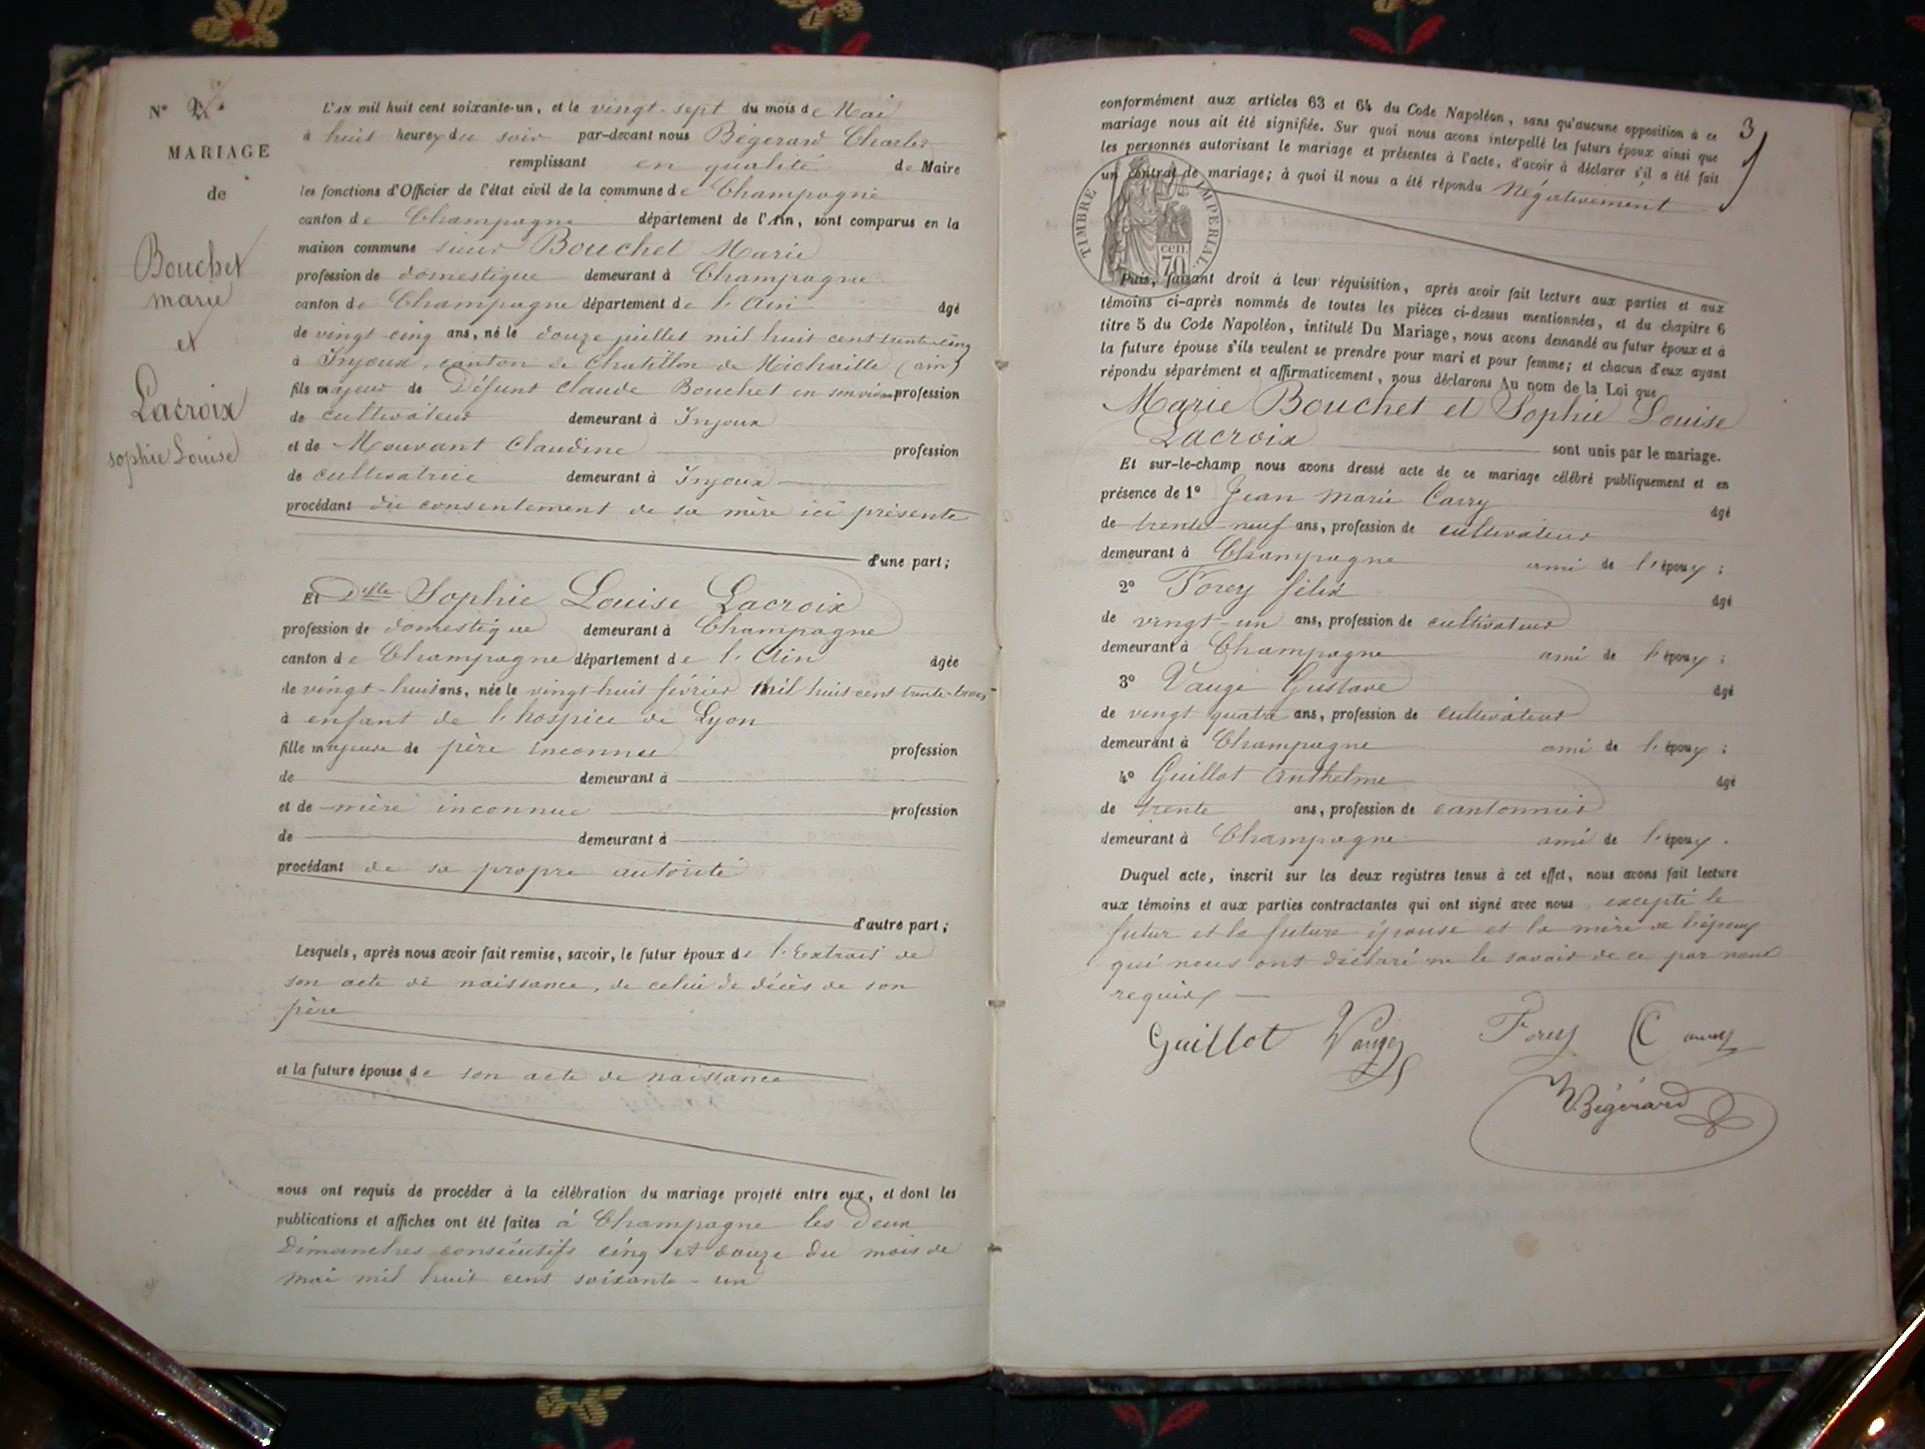 N° 2
MARIAGE
de
Bouchet
marie
et
Lacroix
sophie Louise
L'AN mil huit cent soixante-un, et le vingt-sept du mois de Mai
à huit heures du soir par-devant nous Bégerard Charles
remplissant en qualité de Maire
les fonctions d'Officier de l'état civil de la commune de Champagne
canton de Champagne département de l'Ain, sont comparus en la
maison commune sieur Bouchet Marie
profession de domestique demeurant à Champagne
canton de Champagne département de l'Ain âgé
de vingt-cinq ans, né le douze juillet mil huit cent trente-cinq
à Injoux, canton de Chatillon de Michaille (ain)
fils majeur de Défunt Claude Bouchet en son vivant profession
de cultivateur demeurant à Injoux
et de Mouvant Claudine profession
de cultivatrice demeurant à Injoux
procédant du consentement de sa mère ici présente
d'une part;
Et Dlle Sophie Louise Lacroix
profession de domestique demeurant à Champagne
canton de Champagne département de l'Ain âgée
de vingt-huit ans, née le vingt-huit février mil huit cent trente-trois
à enfant de l'hospice de Lyon
fille majeure de père inconnu profession
de demeurant à
et de mère inconnue profession
de demeurant à
procédant de sa propre autorité
d'autre part;
Lesquels, après nous avoir fait remise, savoir, le futur époux de l'Extrait de
son acte de naissance, de celui de décès de son
père
et la future épouse de son acte de naissance
nous ont requis de procéder à la célébration du mariage projeté entre eux, et dont les
publications et affiches ont été faites à Champagne les deux
Dimanches consécutifs cinq et douze du mois de
mai mil huit cent soixante-un
3
conformément aux articles 63 et 64 du Code Napoléon, sans qu'aucune opposition à ce
mariage nous ait été signifiée. Sur quoi nous avons interpellé les futurs époux ainsi que
les personnes autorisant le mariage et présentes à l'acte, d'avoir à déclarer s'il a été fait
un contrat de mariage; à quoi il nous a été répondu Négativement
TIMBRE IMPERIAL
70 cen.
Puis, faisant droit à leur réquisition, après avoir fait lecture aux parties et aux
témoins ci-après nommés de toutes les pièces ci-dessus mentionnées, et du chapitre 6
titre 5 du Code Napoléon, intitulé Du Mariage, nous avons demandé au futur époux et à
la future épouse s'ils veulent se prendre pour mari et pour femme; et chacun d'eux ayant
répondu séparément et affirmativement, nous déclarons Au nom de la Loi que
Marie Bouchet et Sophie Louise
Lacroix sont unis par le mariage.
Et sur-le-champ nous avons dressé acte de ce mariage célébré publiquement et en
présence de 1° Jean Marie Carry âgé
de trente-neuf ans, profession de cultivateur
demeurant à Champagne ami de l'époux;
2° Forey félix âgé
de vingt-un ans, profession de cultivateur
demeurant à Champagne ami de l'époux;
3° Vauge Gustave âgé
de vingt quatre ans, profession de cultivateur
demeurant à Champagne ami de l'époux;
4° Guillot Anthelme âgé
de trente ans, profession de cantonnier
demeurant à Champagne ami de l'époux.
Duquel acte, inscrit sur les deux registres tenus à cet effet, nous avons fait lecture
aux témoins et aux parties contractantes qui ont signé avec nous excepté le
futur et la future épouse et la mère de l'époux
qui nous ont déclaré ne le savoir de ce par nous
requis
Guillot Vauge Forey Carry
Bégérard